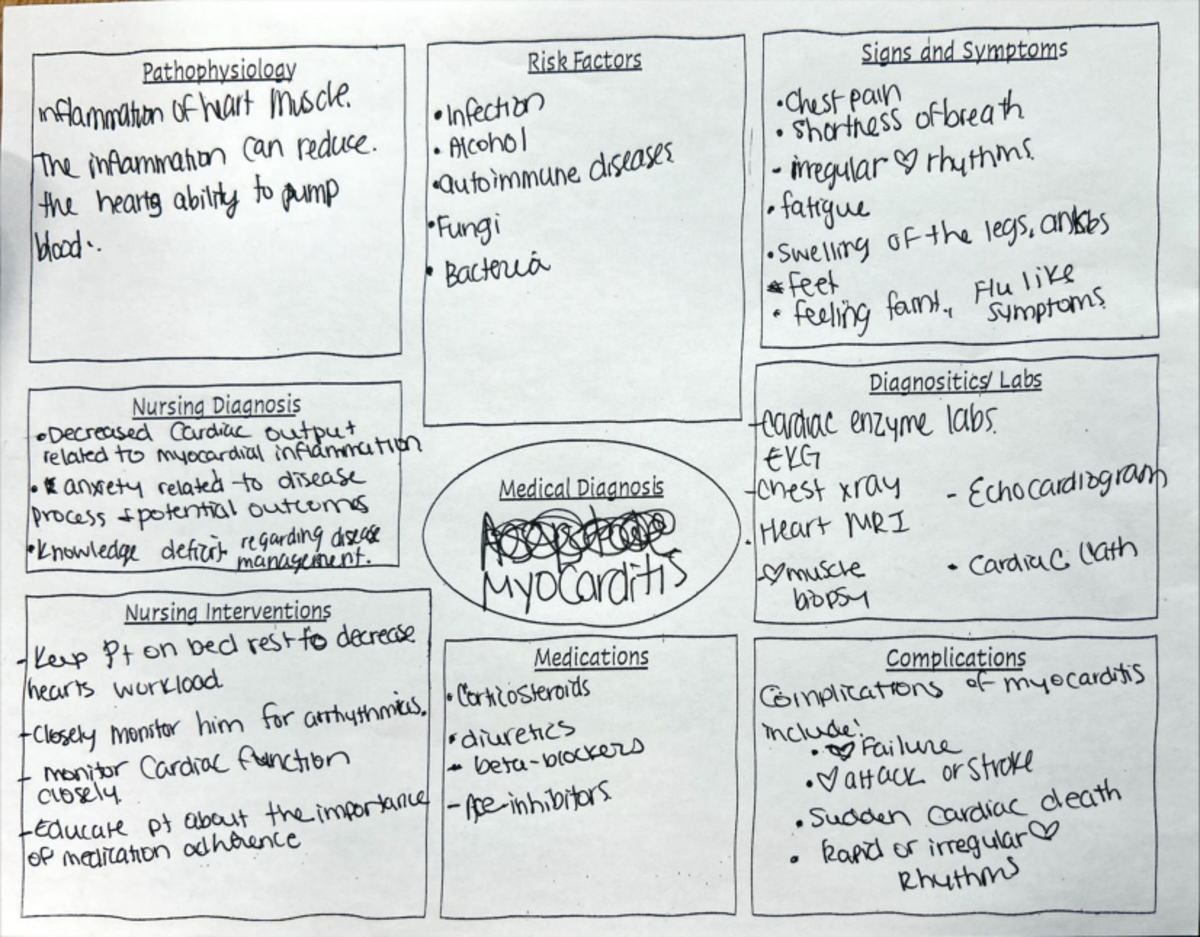 Pathophysiology
inflammation of heart muscle.
The inflammation can reduce.
the hearts ability to pump
blood.
Risk Factors
• Infection
• Alcohol
• autoimmune diseases
• Fungi
• Bacteria
Signs and Symptoms
• Chest pain
• shortness of breath
- irregular ♡ rhythms
• fatigue
• swelling of the legs, ankles
feet
• feeling faint, Flu like
symptoms
Nursing Diagnosis
• Decreased Cardiac output
related to myocardial inflammation
• anxiety related to disease
process + potential outcomes
• Knowledge deficit regarding disease
management.
Medical Diagnosis
Myocarditis
Diagnositics/ Labs
- Cardiac enzyme labs
EKG
- Chest xray
- Echocardiogram
• Heart MRI
- ♡ muscle
biopsy
• Cardiac Cath
Nursing Interventions
- Keep Pt on bed rest to decrease
hearts workload
- Closely monitor him for arrhythmias.
- monitor Cardiac function
closely.
- Educate pt about the importance
of medication adherence
Medications
• Corticosteroids
• diuretics
- beta-blockers
- Ace-inhibitors
Complications
Complications of myocarditis
include:
• ♡ Failure
• ♡ attack or stroke
• Sudden Cardiac death
• Rapid or irregular ♡
Rhythms